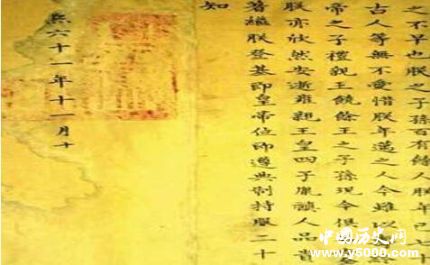 之不早也朕之子孫百有餘人朕年已七十
古人等無不愛惜朕年邁之人今雖以
帝之子禮親王饒餘王之子孫現今俱
朕亦欣然安逝雍親王皇四子胤禛人品貴
著繼朕登基即皇帝位即遵典制持服二十
知
熙六十一年十一月十
中国历史网
www.y5000.com